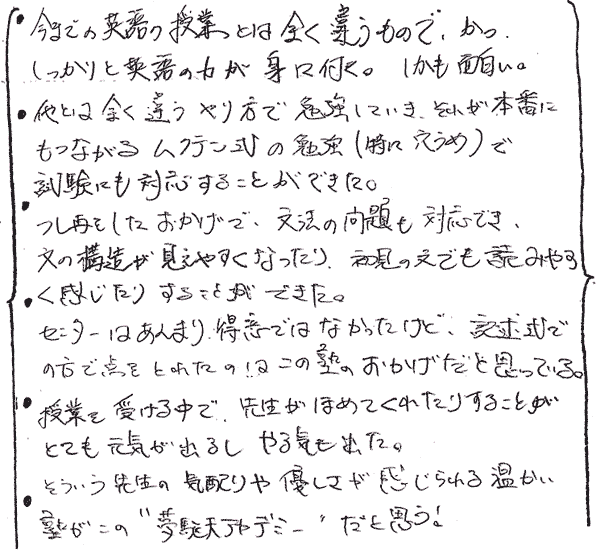 今までの英語の授業とは全く違うもので、かつ、
しっかりと英語の力が身に付く。しかも面白い。
他とは全く違うやり方で勉強していき、それが本番に
もつながるムクテン式の勉強(特に穴うめ)で
試験にも対応することができた。
フレ再をしたおかげで、文法の問題も対応でき、
文の構造が見えやすくなったり、初見の文でも読みやす
く感じたりすることができた。
センターはあんまり得意ではなかったけど、記述式で
の方で点をとれたのはこの塾のおかげだと思っている。
授業を受ける中で、先生がほめてくれたりすることが
とても元気が出るしやる気も出た。
そういう先生の気配りや優しさが感じられる温かい
塾がこの"夢駄天アカデミー"だと思う!